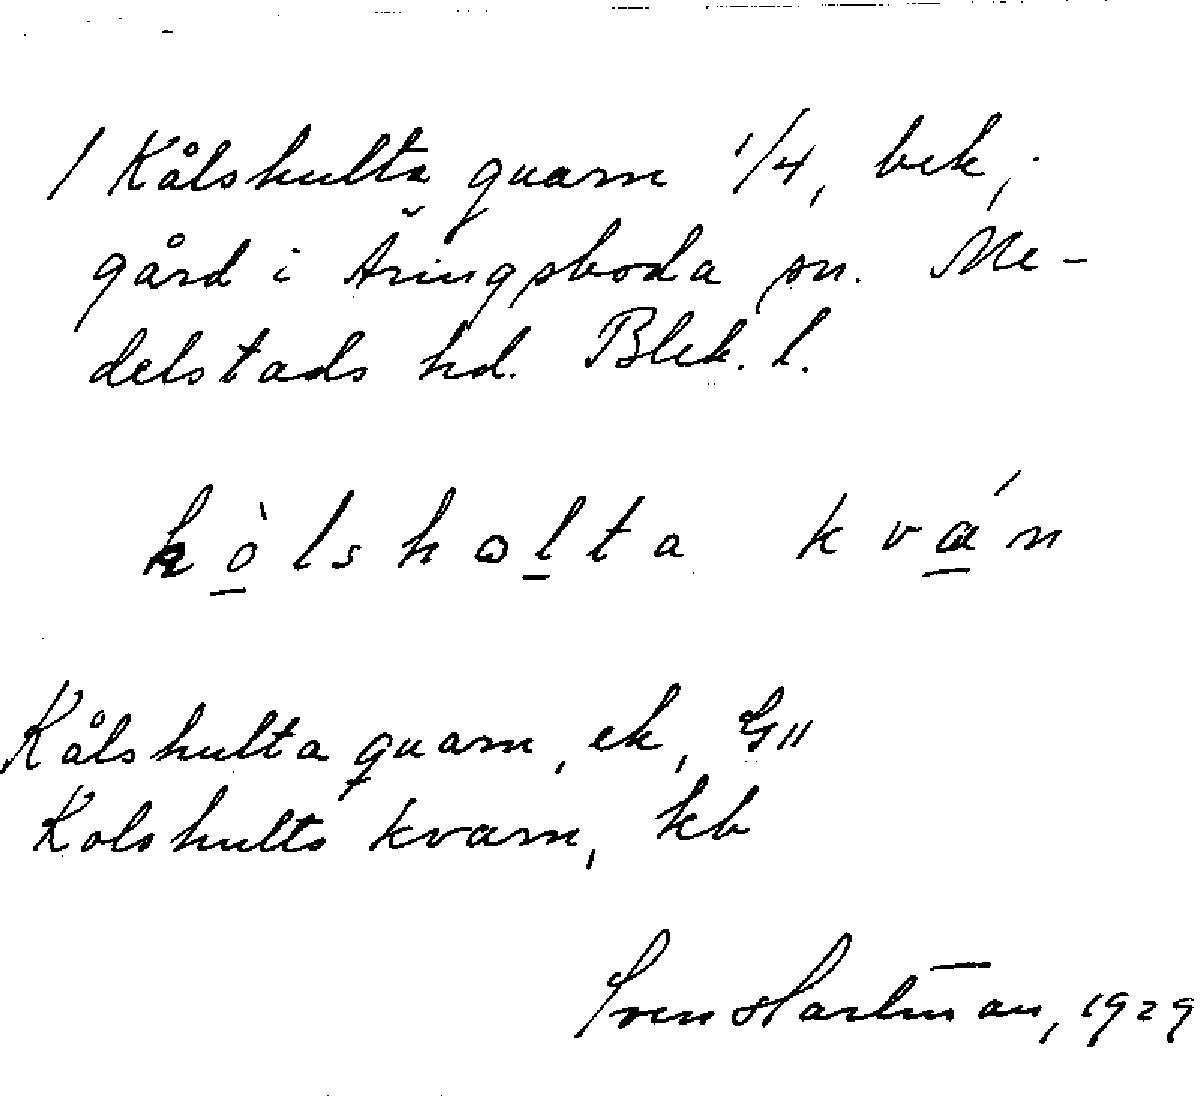 / Kålshulta quarn 1/4, bek,
gård i Åringsboda sn. Me-
delstads hd. Blek. l.
kòlsholta kván
Kålshulta quarn, ek, GII
Kolshults kvarn, kb
Sven Hartman, 1929